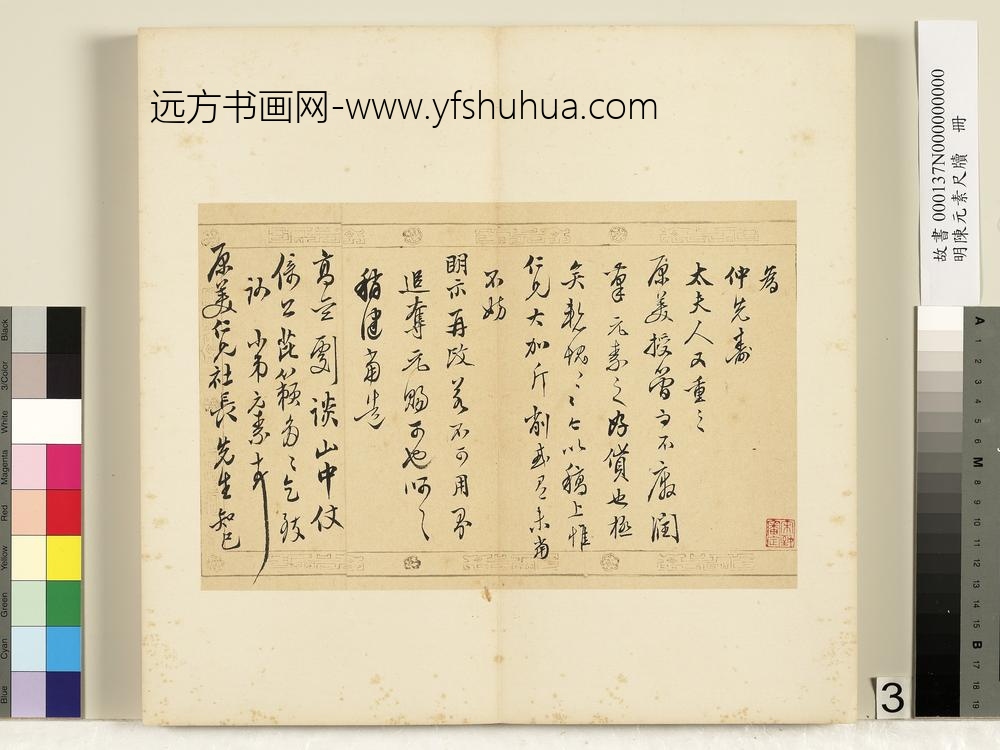 远方书画网-www.yfshuhua.com
為
仲先壽
太夫人又重之
原美授簡而不廢潤
筆元素之好貨也極
矣甚愧〻〻今以稿上惟
仁兄大加斤削或有未當
不妨
明示再改若不可用即
追奪元賜可也何〻
稍健當造
高齋劇談山中仗
倚公
小弟元素
原美仁兄社長先生知己
故書 000137N000000000
明陳元素尺牘 冊
3
Black
3/Color
White
Magenta
Red
Yellow
Green
Cyan
Blue
A 1 2 3 4 5 6 M 8 9 10 11 12 13 14 15 B 17 18 19